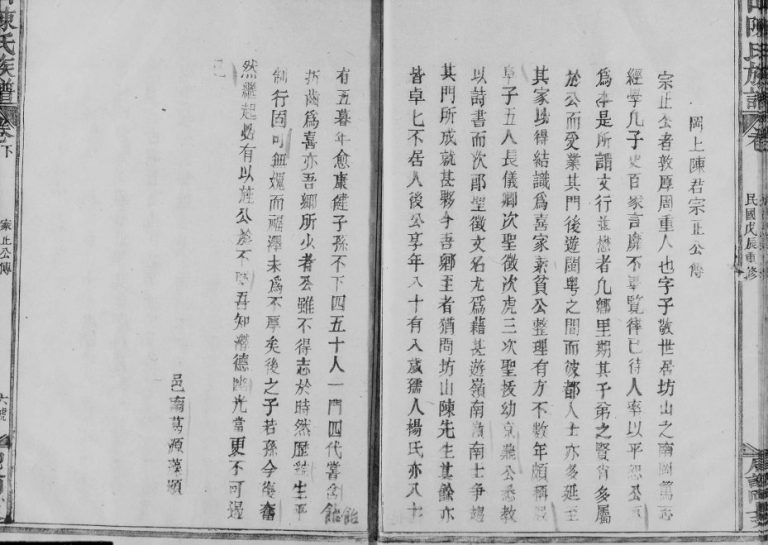 陳氏族譜
民國戊辰重修
岡上陳君宗止公傳
宗止公者敦厚周重人也字子敬世居坊山之南岡篤志
經學凡子史百家言靡不畢覽律己待人率以平恕公
為是所謂文行並懋者凡鄉里期其子弟之賢肖多屬
於公而受業其門後遊閩粵之間而彼都人士亦多延至
其家以得結識為喜家素貧公整理有方不數年頗稱
阜子五人長儀卿次聖徵次虎三次聖援幼京公悉教
以詩書而次郎聖徵文名尤為藉甚遊嶺南嶺南士爭趨
其門所成就甚夥今吾鄉至者猶問坊山陳先生其餘亦
皆卓七不居人後公享年八十有八歲孺人楊氏亦八十
有五暮年愈康健子孫不下四五十人一門四代嘗含飴
折齒為喜亦吾鄉所少者公雖不得志於時然歷生平
制行固可無媿而福澤未為不厚矣後之子若孫今復奮
然繼起必有以旌公吾知潛德幽光當更不可遏
已
邑南葛源葉顯
陳氏族譜
卷下
宗止公傳
六號